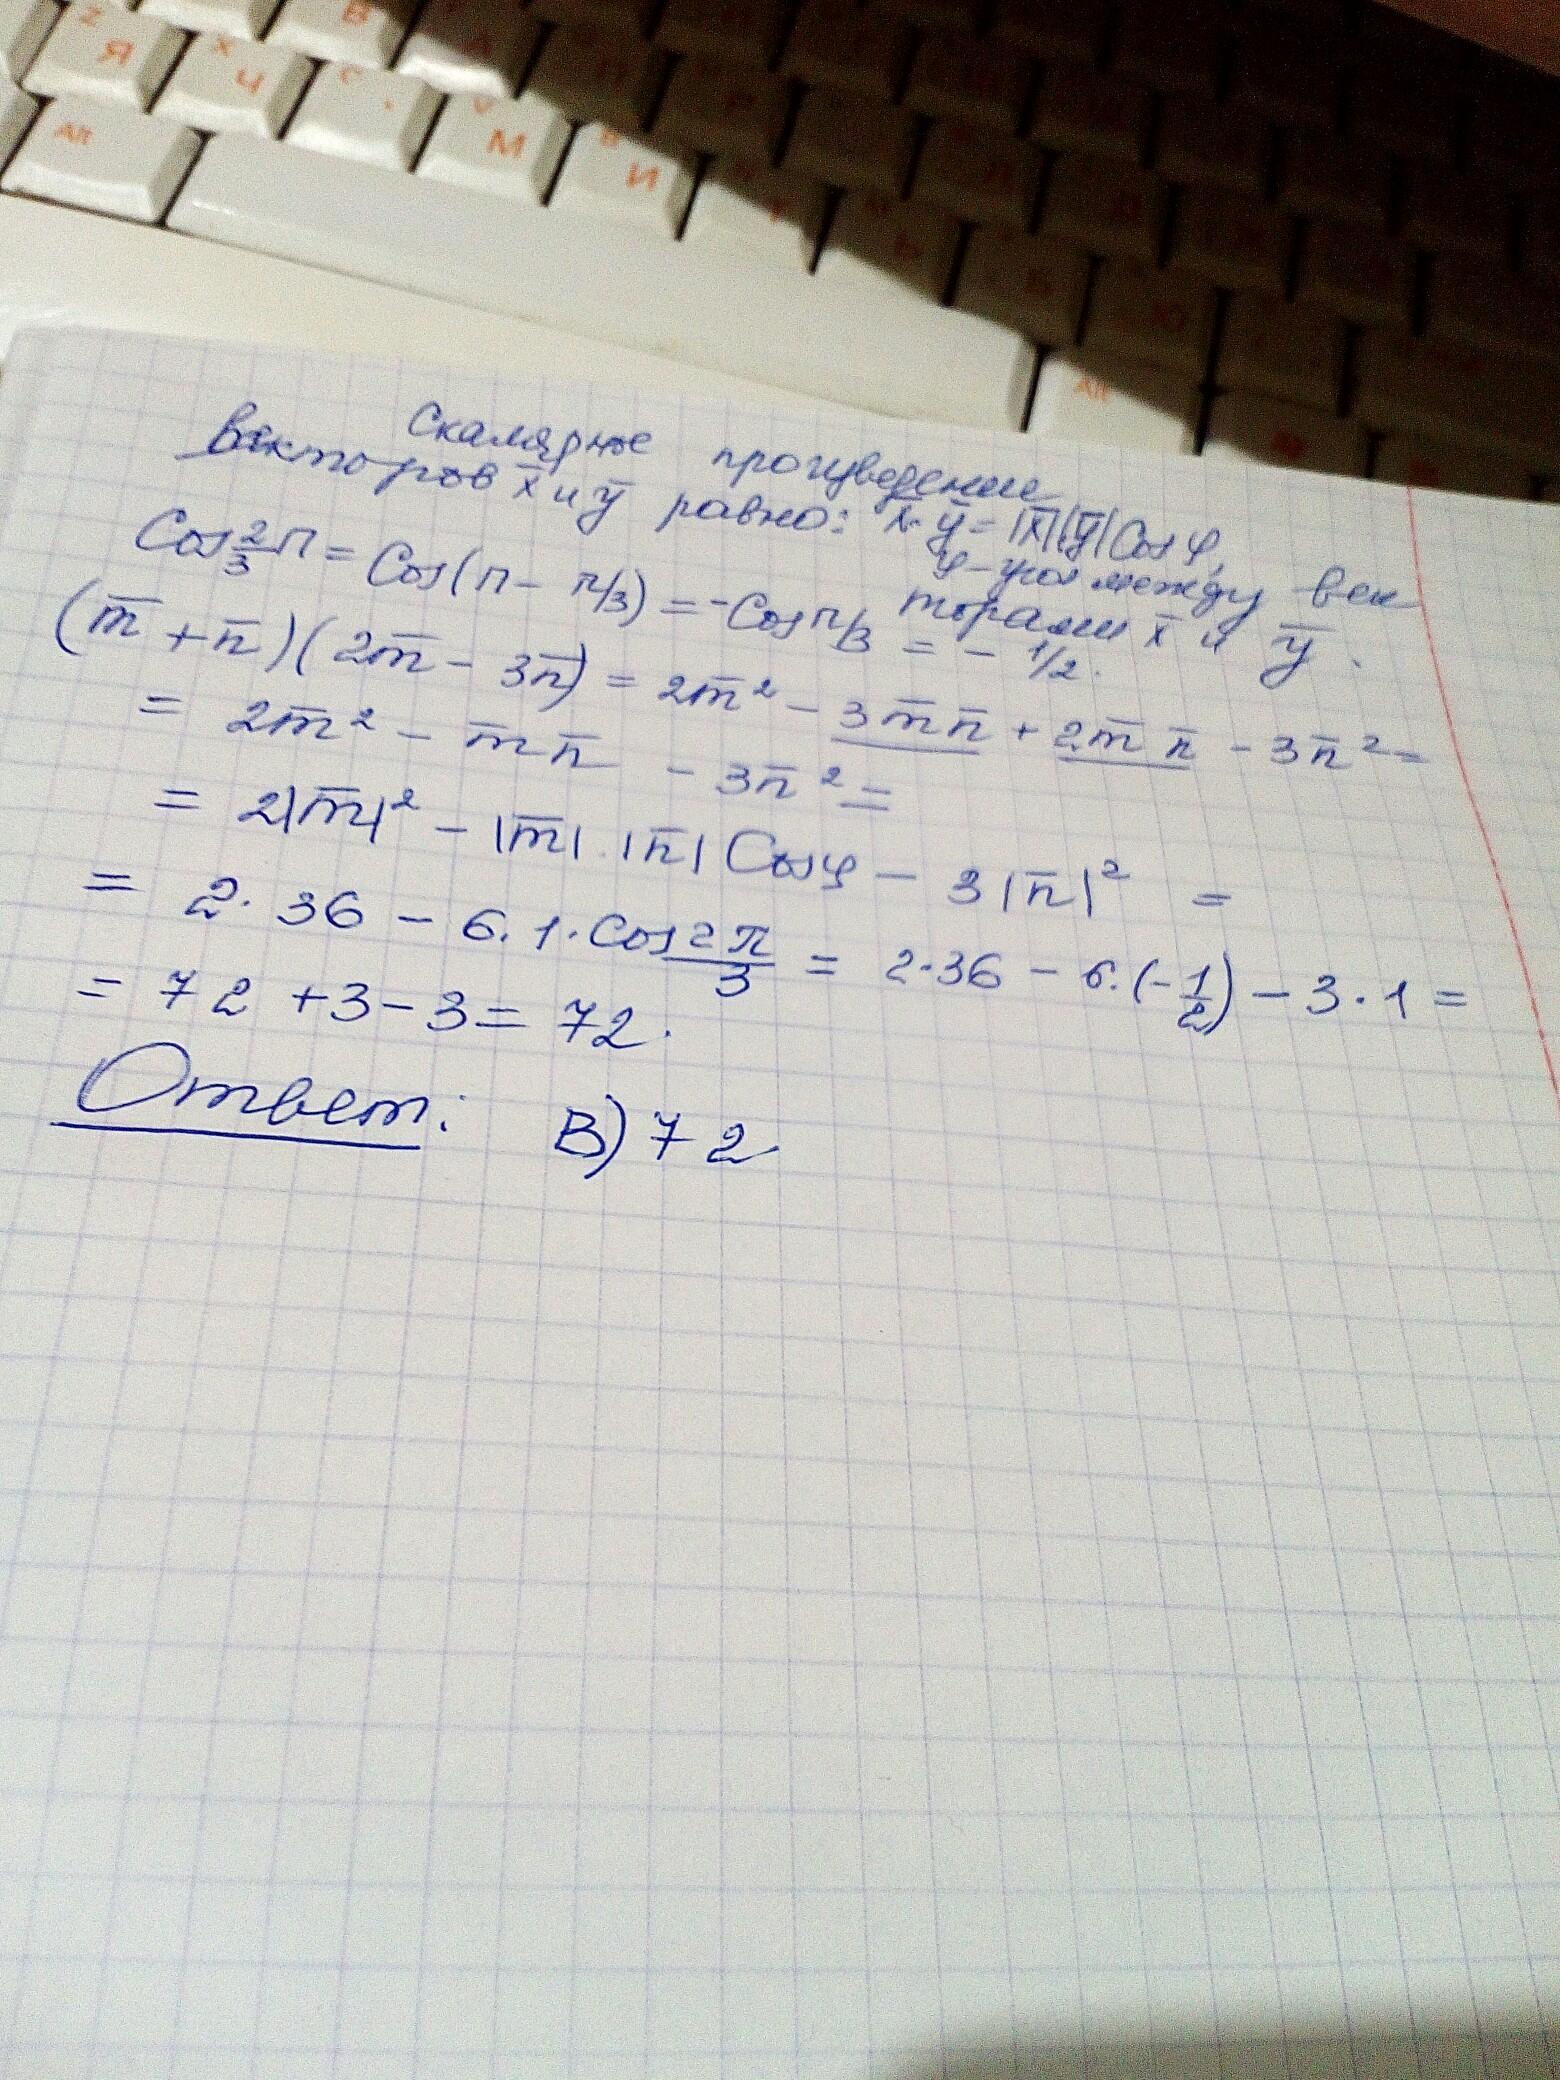 Z Я
X Ч
С
V М
В И
Alt
Alt
Скалярное произведение
векторов x̅ и y̅ равно: x̅·y̅ = |x̅|·|y̅| Cos φ,
φ - угол между век
торами x̅ и y̅.
Cos 2/3 π = Cos(π - π/3) = -Cos π/3 = - 1/2.
(m̅ + n̅)(2m̅ - 3n̅) = 2m̅² - 3m̅n̅ + 2m̅n̅ - 3n̅² =
= 2m̅² - m̅n̅ - 3n̅² =
= 2|m̅|² - |m̅|·|n̅| Cosφ - 3|n̅|² =
= 2·36 - 6·1·Cos 2π/3 = 2·36 - 6·(-1/2) - 3·1 =
= 72 + 3 - 3 = 72.
Ответ: В) 72.